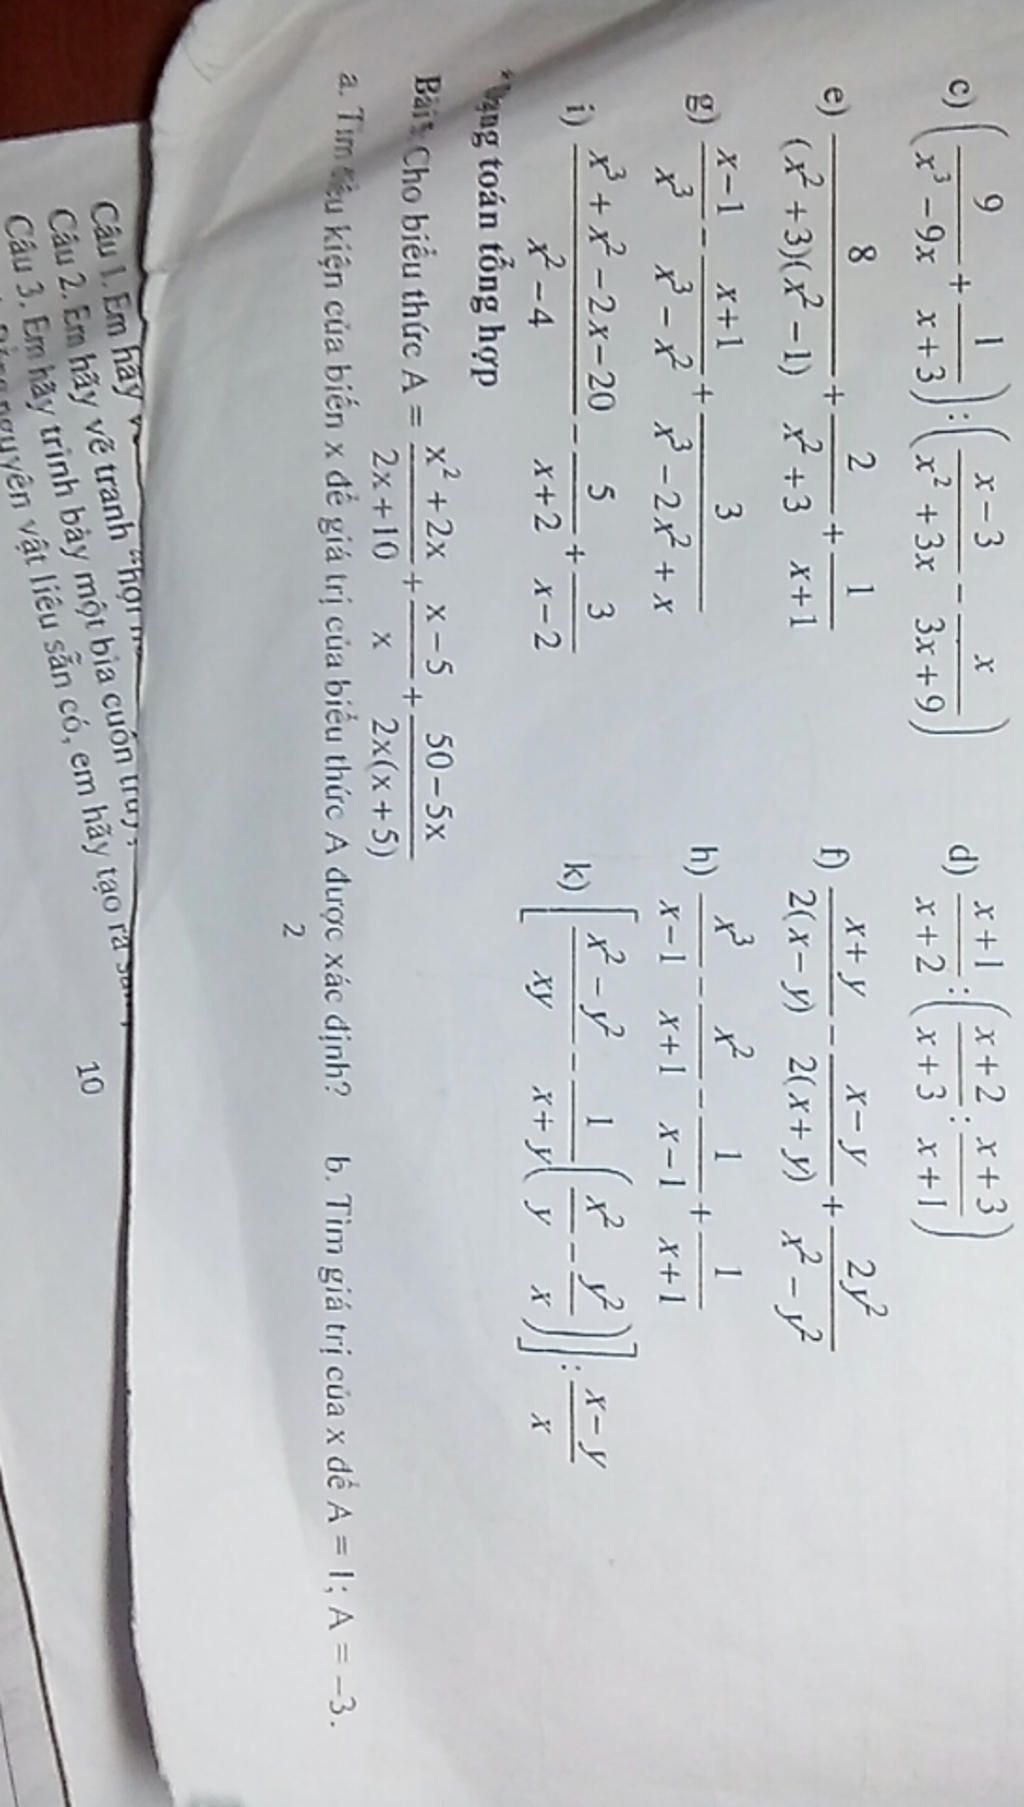 c) (9/(x³ − 9x) + 1/(x + 3)) : ((x − 3)/(x² + 3x) − x/(3x + 9))
d) (x+1)/(x+2) : ((x+2)/(x+3) : (x+3)/(x+1))
e) 8/((x² + 3)(x² − 1)) + 2/(x² + 3) + 1/(x+1)
f) (x+y)/(2(x−y)) − (x−y)/(2(x+y)) + 2y²/(x² − y²)
g) (x−1)/x³ − (x+1)/(x³ − x²) + 3/(x³ − 2x² + x)
h) x³/(x−1) − x²/(x+1) − 1/(x−1) + 1/(x+1)
i) (x³ + x² − 2x − 20)/(x² − 4) − 5/(x+2) + 3/(x−2)
k) [(x² − y²)/xy − 1/(x+y) (x²/y − y²/x)] : (x−y)/x
toán tổng hợp
Cho biểu thức A = (x² + 2x)/(2x + 10) + (x − 5)/x + (50 − 5x)/(2x(x + 5))
a. Tìm kiện của biến x để giá trị của biểu thức A được xác định? b. Tìm giá trị của x để A = 1; A = −3.
2
10
Câu 1. Em hãy
Câu 2. Em hãy vẽ tranh
Câu 3. Em hãy trình bày một bìa cuốn
nguyên vật liệu sẵn có, em hãy tạo ra